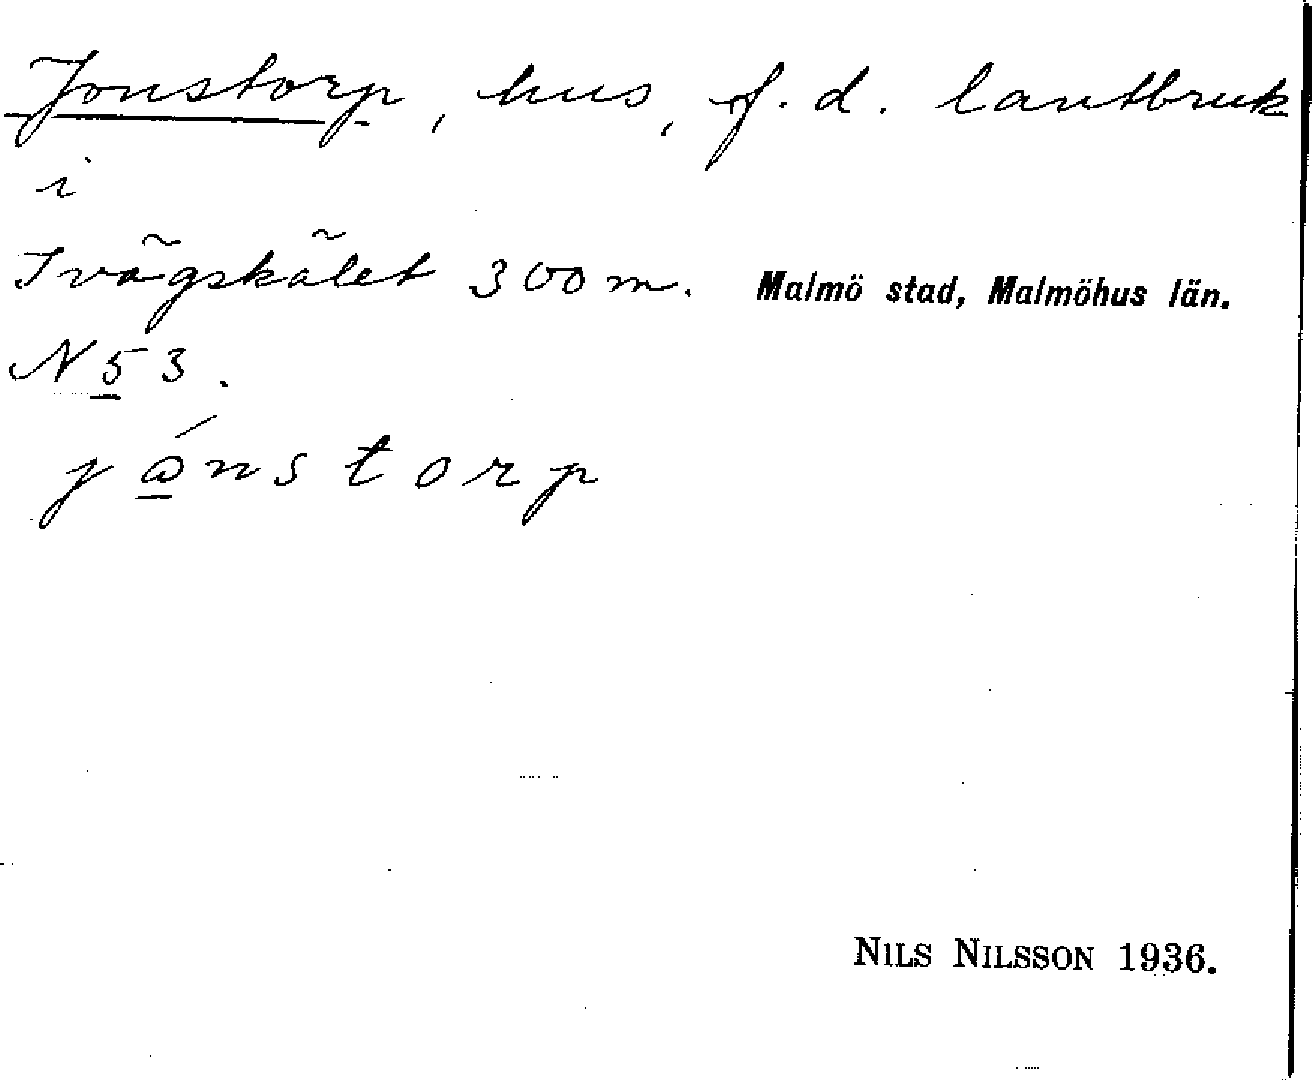 Jonstorp, hus, f.d. lantbruk
i
Tvägskälet 300 m. Malmö stad, Malmöhus län.
N 53.
jánstorp
NILS NILSSON 1936.